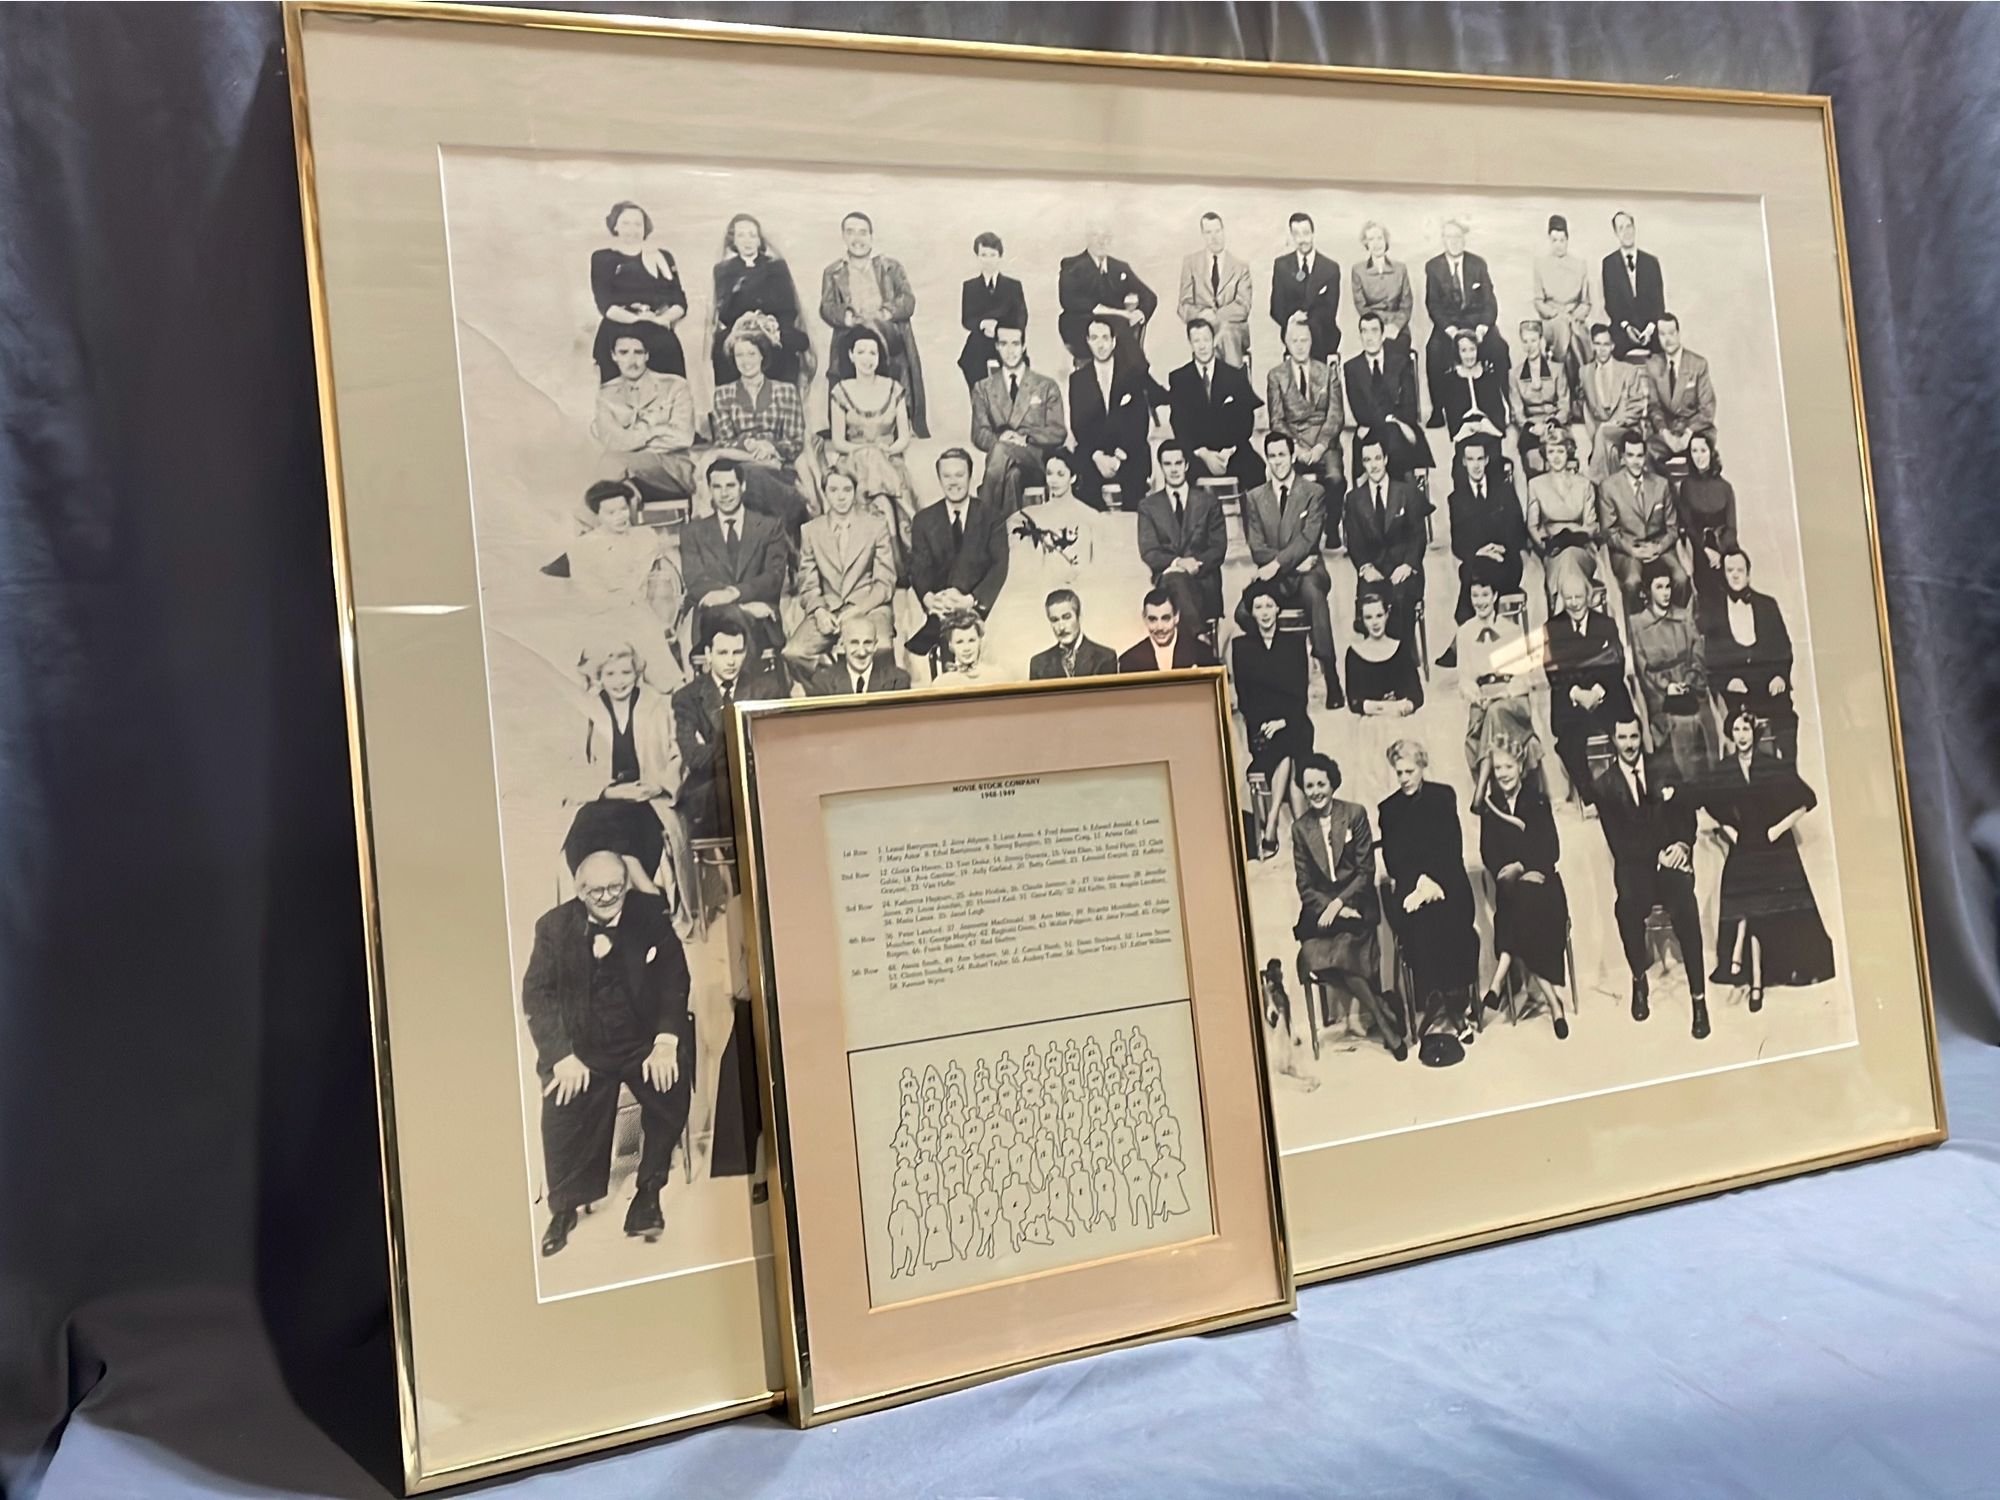 MOVIE STOCK COMPANY
1948-1949
1st Row 1. Lionel Barrymore, 2. June Allyson, 3. Leon Ames, 4. Fred Astaire, 5. Edward Arnold, 6. Lassie,
7. Mary Astor, 8. Ethel Barrymore, 9. Spring Byington, 10. James Craig, 11. Arlene Dahl
2nd Row 12. Gloria De Haven, 13. Tom Drake, 14. Jimmy Durante, 15. Vera Ellen, 16. Errol Flynn, 17. Clark
Gable, 18. Ava Gardner, 19. Judy Garland, 20. Betty Garrett, 21. Edmund Gwenn, 22. Kathryn
Grayson, 23. Van Heflin
3rd Row 24. Katharine Hepburn, 25. John Hodiak, 26. Claude Jarman, Jr., 27. Van Johnson, 28. Jennifer
Jones, 29. Louis Jourdan, 30. Howard Keel, 31. Gene Kelly, 32. Alf Kjellin, 33. Angela Lansbury,
34. Mario Lanza, 35. Janet Leigh
4th Row 36. Peter Lawford, 37. Jeannette MacDonald, 38. Ann Miller, 39. Ricardo Montalban, 40. Jules
Munchen, 41. George Murphy, 42. Reginald Owen, 43. Walter Pidgeon, 44. Jane Powell, 45. Ginger
Rogers, 46. Frank Sinatra, 47. Red Skelton
5th Row 48. Alexis Smith, 49. Ann Sothern, 50. J. Carroll Naish, 51. Dean Stockwell, 52. Lewis Stone
53. Clinton Sundberg, 54. Robert Taylor, 55. Audrey Totter, 56. Spencer Tracy, 57. Esther Williams
58. Keenan Wynn